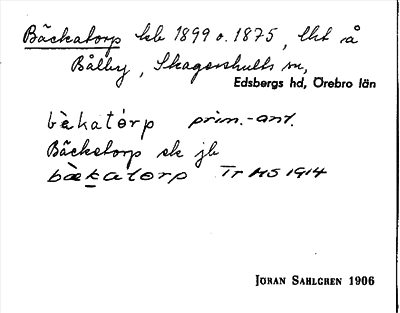 Bäckatorp hb 1899 o. 1875, lht å
Bålby, Skagershults sn,
Edsbergs hd, Örebro län
bèkatórp prim.-ant.
Bäckatorp ek jb
bækatorp Tr HS 1914
JÖRAN SAHLGREN 1906